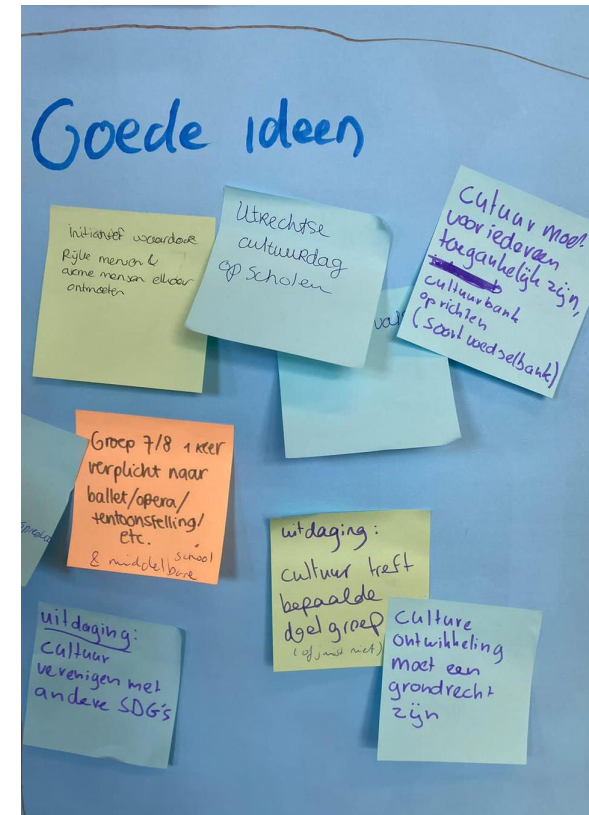 Goede ideen
Initiatief waardoor
Rijke mensen &
arme mensen elkaar
ontmoeten
Utrechtse
cultuurdag
op scholen
cultuur moet
voor iedereen
toegankelijk zijn,
cultuurbank
oprichten
(soort voedselbank)
Groep 7/8 1 keer
verplicht naar
ballet/opera/
tentoonstelling/
etc.
& middelbare school
uitdaging:
cultuur treft
bepaalde
doelgroep
(of juist niet)
uitdaging:
cultuur
verenigen met
andere SDG's
Culture
ontwikkeling
moet een
grondrecht
zijn